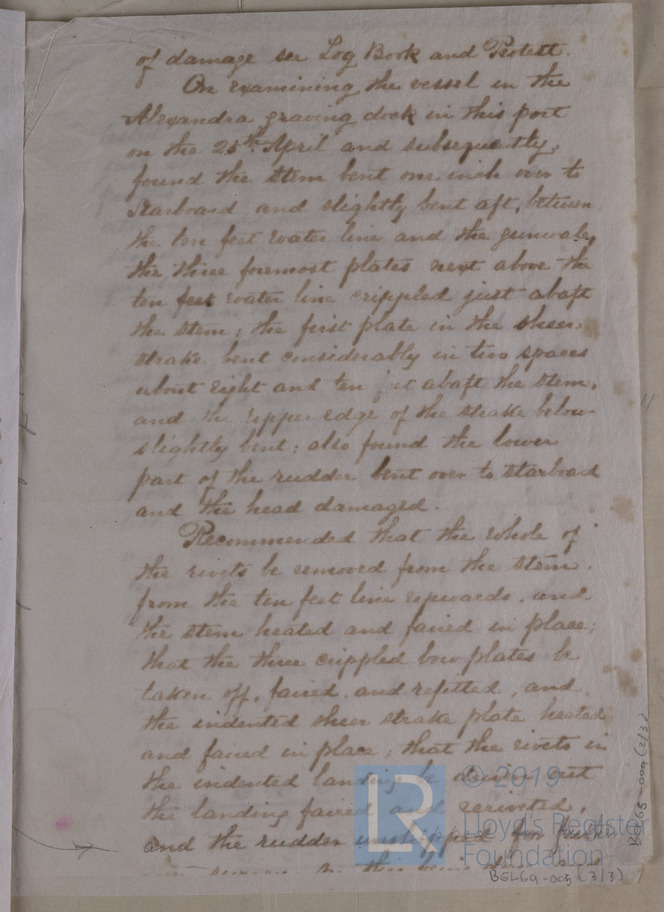 of damage see Log Book and Protest.
On examining the vessel in the
Alexandra graving dock in this port
on the 25th April and subsequently,
found the stem bent one inch over to
Starboard and slightly bent aft, between
the ten feet water line and the gunwale,
the three foremost plates next above the
ten feet water line crippled just abaft
the stem; the first plate in the sheer
strake bent considerably in two spaces
about eight and ten feet abaft the stem,
and the upper edge of the strake below
slightly bent; also found the lower
part of the rudder bent over to starboard
and the head damaged.
Recommended that the whole of
the rivets be removed from the stem
from the ten feet line upwards, and
the stem heated and faired in place;
that the three crippled bow plates be
taken off, faired, and refitted, and
the indented sheer strake plate heated
and faired in place; that the rivets in
the indented landing be driven out
the landing faired and reriveted,
and the rudder unshipped for
LR
© 2019
Lloyd's Register
Foundation
BGL69-009 (3/3)
BGL69-009 (3/3)